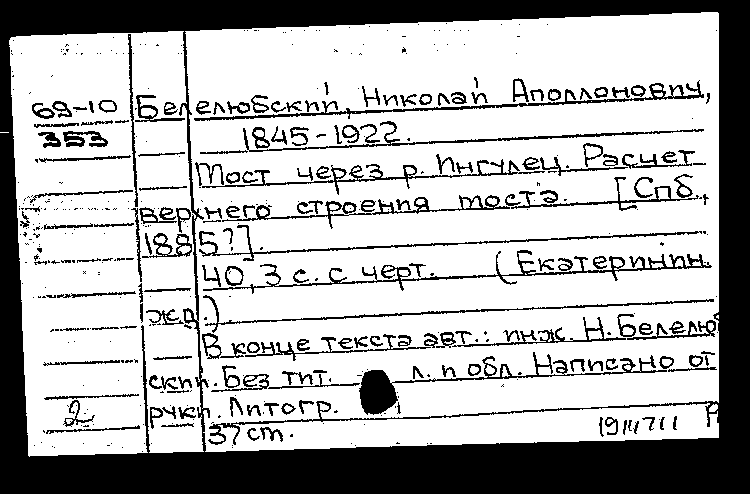 69-10 Белелюбский, Николай Аполлонович,
353 1845-1922.
Мост через р. Ингулец. Расчет
верхнего строения моста. [Спб.,
1885?].
40, 3 с. с черт. (Екатеринин.
жд.)
В конце текста авт.: инж. Н. Белелюб
ский. Без тит. л. и обл. Написано от
2 руки. Литогр.
37 см.